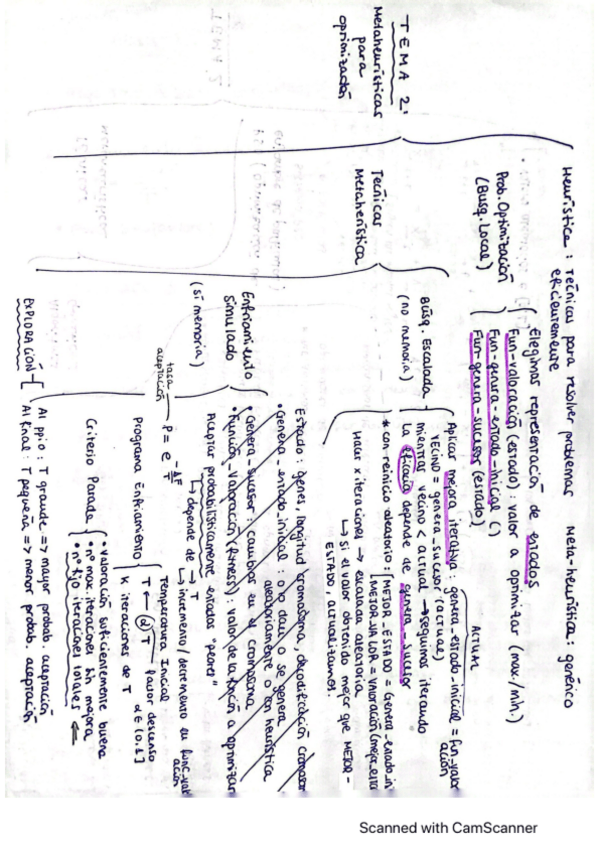 TEMA 2:
Metaheurísticas
para
optimización
Heurística: Técnicas para resolver problemas eficientemente
Meta-heurística: genérico
Prob. Optimización
(Busq. Local)
Elegimos representación de estados
Fun-valoración (estado): valor a optimizar (max./min.)
Fun-genera-estado-inicial ()
Fun-genera-sucesor (estado)
Técnicas
Metaherística
Búsq. Escalada
(no memoria)
ACTUAL
Aplicar mejora iterativa: genera_estado-inicial = fun_valor
ación
VECINO = genera_sucesor (actual)
mientras vecino < actual → seguimos iterando
La eficacia depende de genera-sucesor
* con reinicio aleatorio: MEJOR_ESTADO = Genera_estado_in
MEJOR_VALOR = Valoración (mejor_esta
Hacer x iteraciones → escalada aleatoria
↳ si el valor obtenido mejor que MEJOR-
ESTADO, actualizamos.
Estado: genes, longitud cromosoma, decodificación cromosor
• Genera_estado_inicial: o lo dan, o se genera
aleatoriamente o con heurística
• genera_sucesor: cambios en el cromosoma
• Función_valoración (fitness): valor de la función a optimizar
Enfriamiento
simulado
(sí memoria)
Aceptar probabilísticamente estados "peores"
↳ depende de → T
↳ incremento/decremento en func_val
ación
tasa
aceptación
P = e -ΔF/T
Programa Enfriamiento
Temperatura Inicial
T ← αT → factor descenso
K iteraciones de T α∈[0,1]
Criterio Parada
• valoración suficientemente buena
• nº max. iteraciones sin mejora
• nº fijo iteraciones totales ⇐
EXPLORACIÓN
Al ppio: T grande => mayor probab. aceptación
Al final: T pequeña => menor probab. aceptación
Scanned with CamScanner